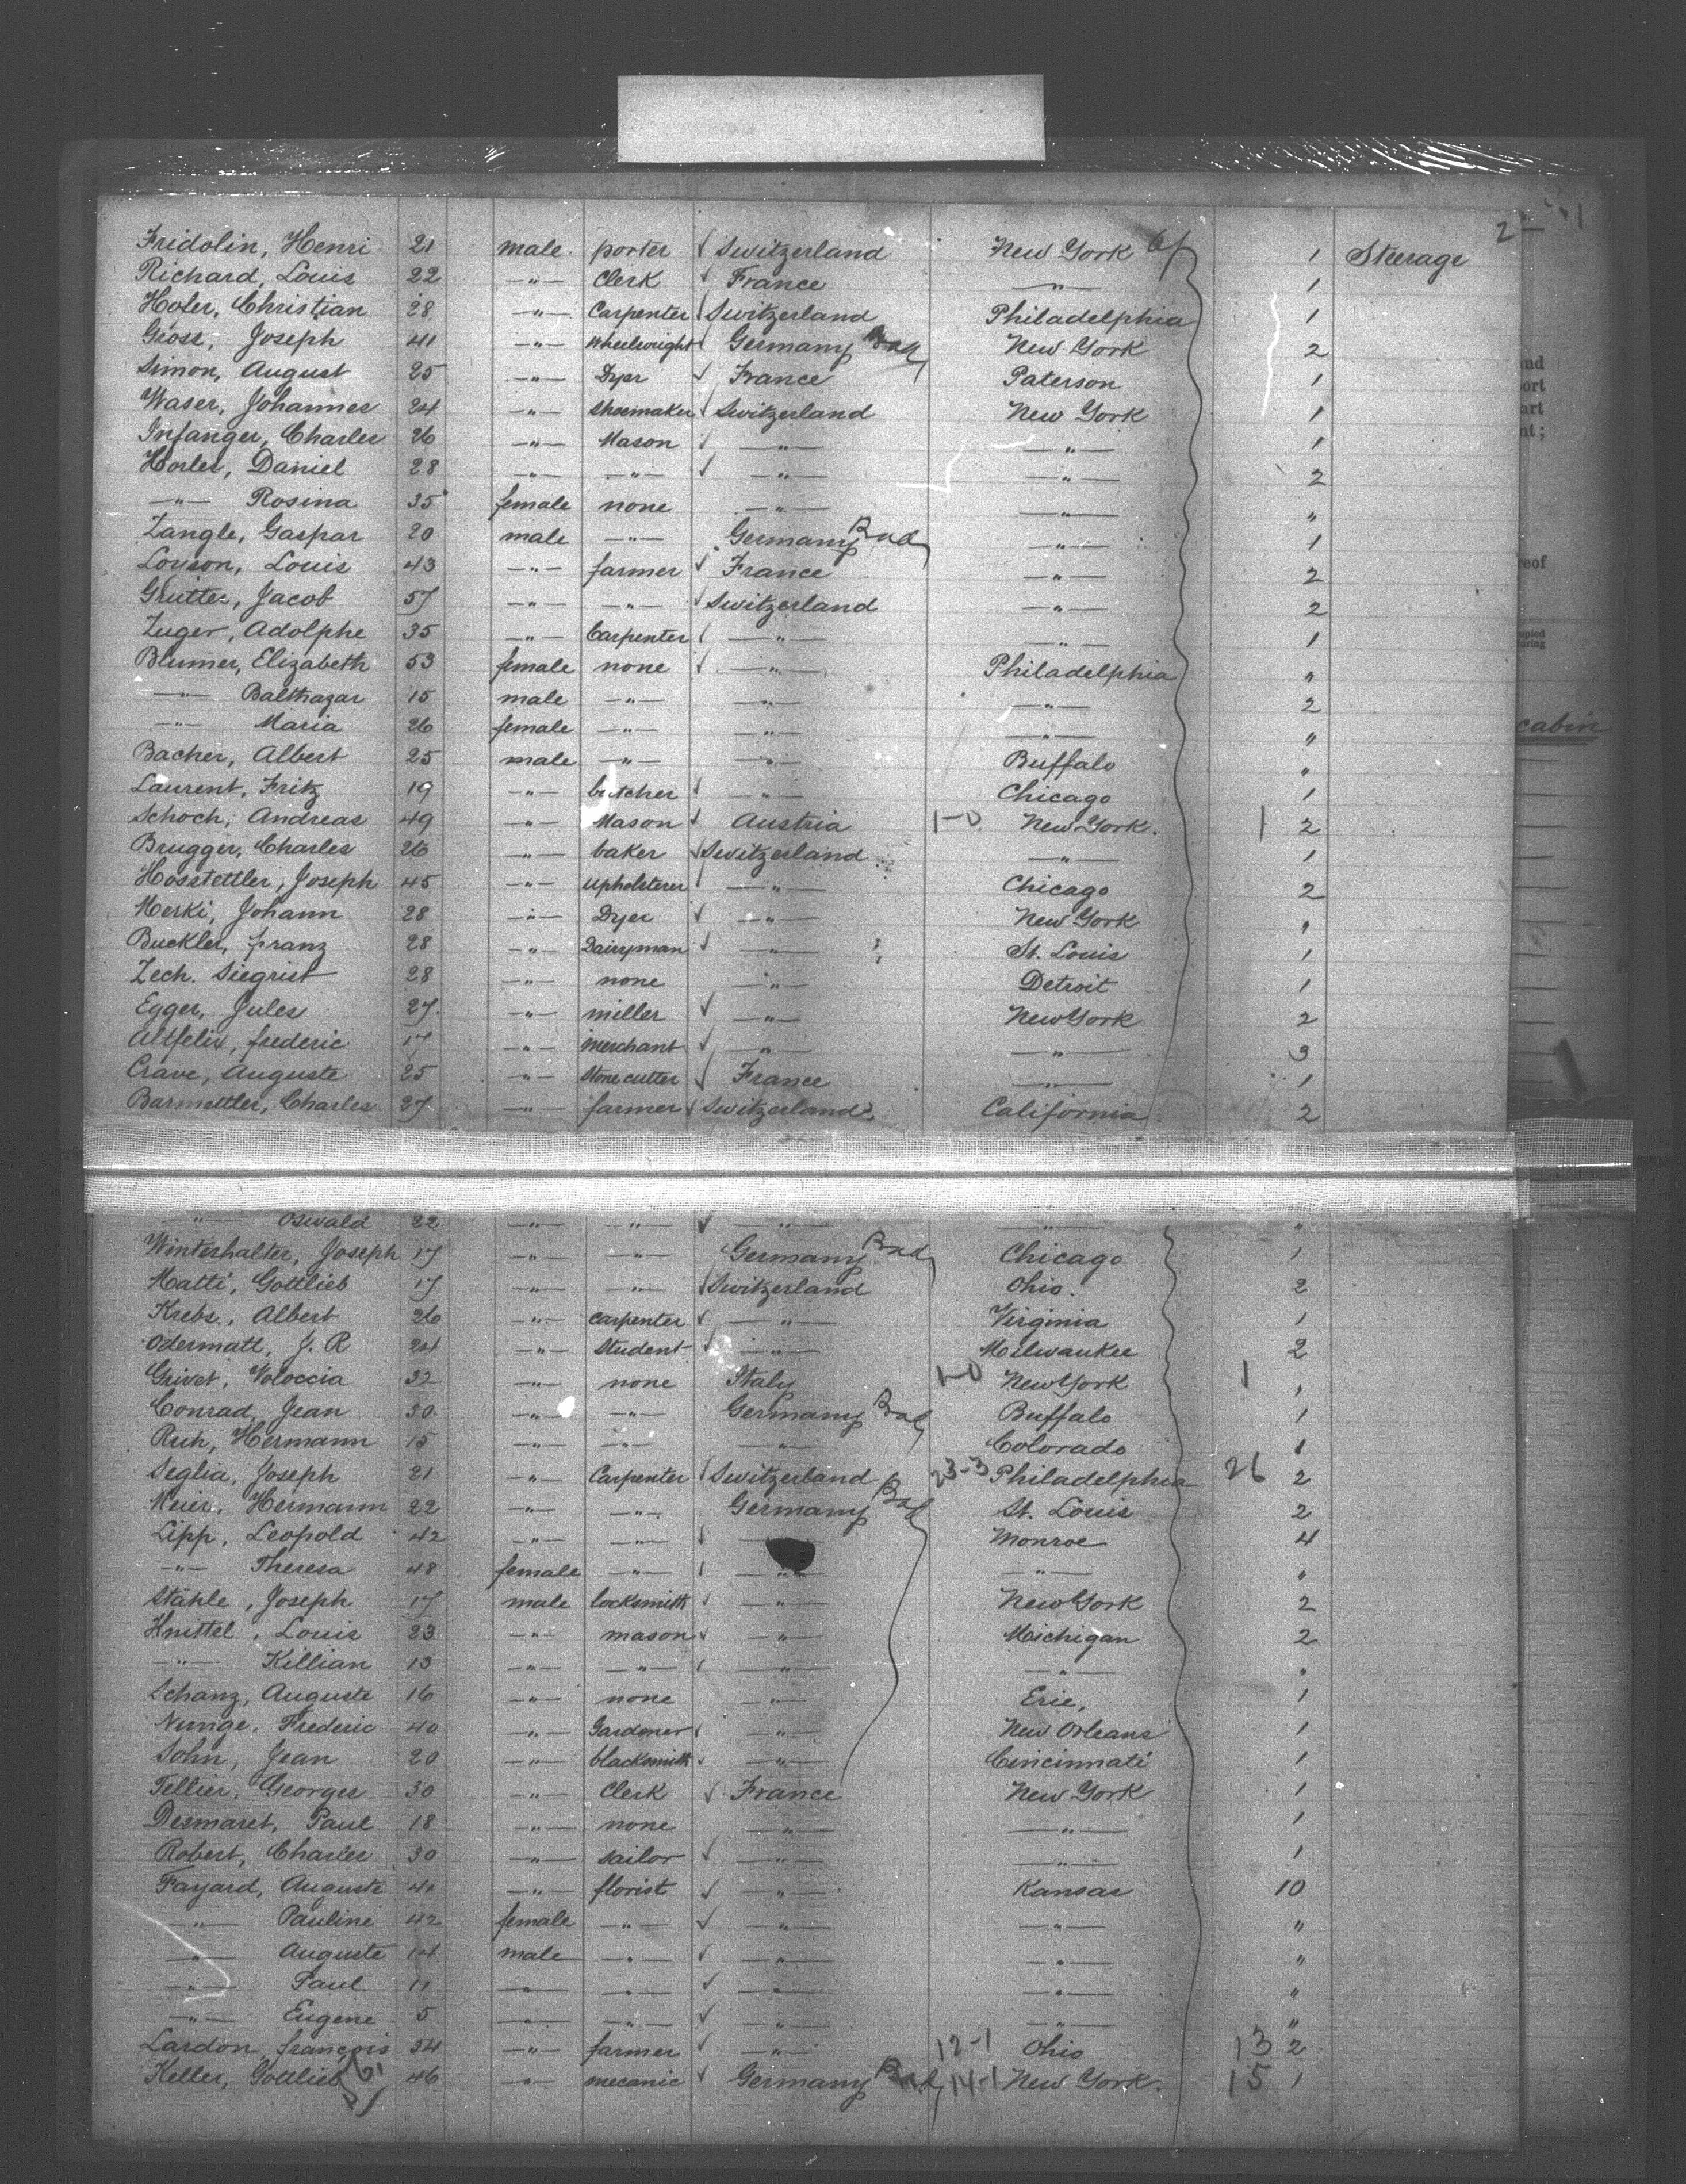 2 - 1
Fridolin, Henri 21 male porter ✓ Switzerland New York 1 Steerage
Richard, Louis 22 —"— Clerk ✓ France —"— 1
Hofer, Christian 28 —"— Carpenter ✓ Switzerland Philadelphia 1
Gross, Joseph 41 —"— Wheelwright ✓ Germany Bad New York 2
Simon, August 25 —"— Dyer ✓ France Paterson 1
Waser, Johannes 24 —"— Shoemaker ✓ Switzerland New York 1
Infanger, Charles 26 —"— Mason ✓ —"— —"— 1
Horler, Daniel 28 —"— —"— ✓ —"— —"— 2
—"— Rosina 35 female none —"— —"— "
Zangle, Gaspar 20 male —"— Germany Bad —"— 1
Louson, Louis 43 —"— farmer ✓ France —"— 2
Grutter, Jacob 57 —"— —"— ✓ Switzerland —"— 2
Zuger, Adolphe 35 —"— Carpenter ✓ —"— —"— 1
Blumer, Elizabeth 53 female none ✓ —"— Philadelphia "
—"— Balthazar 15 male —"— —"— —"— 2
—"— Maria 26 female —"— —"— —"— "
Bacher, Albert 25 male —"— —"— Buffalo "
Laurent, Fritz 19 —"— butcher ✓ —"— Chicago 1
Schoch, Andreas 49 —"— Mason ✓ Austria 1-0 New York. 1 2
Brugger, Charles 26 —"— baker ✓ Switzerland —"— 1
Hosstettler, Joseph 45 —"— Upholsterer ✓ —"— Chicago 2
Merki, Johann 28 —"— Dyer ✓ —"— New York "
Buckler, franz 28 —"— Dairyman ✓ —"— St. Louis 1
Zech. Siegrist 28 —"— none —"— Detroit 1
Egger, Jules 27. —"— miller ✓ —"— New York 2
Altfelix, frederic 17 —"— merchant ✓ —"— —"— 3
Crave, Auguste 25 —"— Stone cutter ✓ France —"— 1
Barmettler, Charles 27 —"— farmer ✓ Switzerland California 2
—"— Oswald 22 —"— —"— ✓ —"— —"— "
Winterhalter, Joseph 17 —"— —"— Germany Bad Chicago 1
Matti, Gottlieb 17 —"— —"— ✓ Switzerland Ohio. 2
Krebs, Albert 26 —"— carpenter ✓ —"— Virginia 1
Odermatt, J. R 24 —"— Student ✓ —"— Milwaukee 2
Grivet, Voloccia 32 —"— none Italy 1-0 New York 1 1
Conrad, Jean 30 —"— —"— Germany Bad Buffalo 1
Ruh, Hermann 15 —"— —"— —"— Colorado 1
Seglia, Joseph 21 —"— Carpenter ✓ Switzerland 23-3 Philadelphia 26 2
Meier, Hermann 22 —"— —"— Germany Bad St. Louis 2
Lipp, Leopold 42 —"— —"— ✓ Monroe 4
—"— Theresa 48 female —"— ✓ —"— —"— "
Stähle, Joseph 17 male locksmith ✓ —"— New York 2
Knittel, Louis 23 —"— mason ✓ —"— Michigan 2
—"— Killian 13 —"— —"— ✓ —"— —"— "
Schanz, Auguste 16 —"— none —"— Erie, 1
Nunge, Frederic 40 —"— Gardener ✓ —"— New Orleans 1
Sohn, Jean 20 —"— blacksmith ✓ —"— Cincinnati 1
Tellier, Georges 30 —"— Clerk ✓ France New York 1
Desmaret, Paul 18 —"— none —"— —"— 1
Robert, Charles 30 —"— sailor ✓ —"— —"— 1
Fayard, Auguste —"— florist ✓ —"— Kansas 10
—"— Pauline 42 female —"— ✓ —"— —"— "
—"— Auguste 14 male —"— ✓ —"— —"— "
—"— Paul 11 —"— —"— ✓ —"— —"— "
—"— Eugene 5 —"— —"— ✓ —"— —"— "
Lardon, françois 54 —"— farmer ✓ —"— 12-1 Ohio 13 2
Keller, Gottlieb 46 —"— mecanic ✓ Germany Bad 14-1 New York. 15 1
cabin